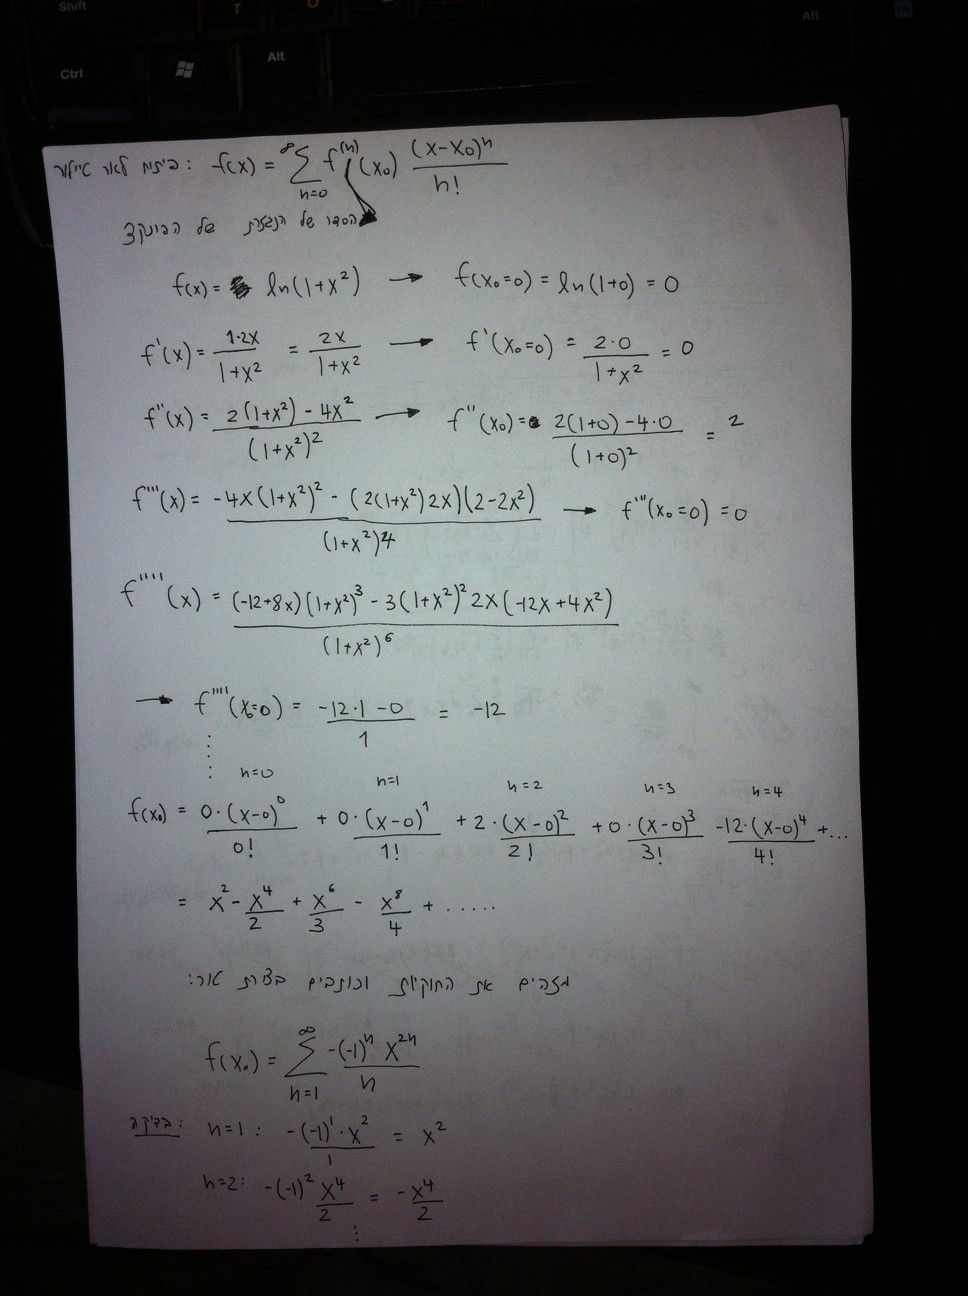 Shift
Alt
Ctrl
Alt
פיתוח לטור טיילור : f(x) = ∑_{n=0}^{∞} f^{(n)}(x₀) (x-x₀)^n / n!
הסדר של הנגזרת של הפונקצ
f(x) = ln(1+x²) → f(x₀=0) = ln(1+0) = 0
f'(x) = 1·2x / 1+x² = 2x / 1+x² → f'(x₀=0) = 2·0 / 1+x² = 0
f''(x) = 2(1+x²) - 4x² / (1+x²)² → f''(x₀) = 2(1+0) - 4·0 / (1+0)² = 2
f'''(x) = -4x(1+x²)² - (2(1+x²)2x)(2-2x²) / (1+x²)⁴ → f'''(x₀=0) = 0
f''''(x) = (-12+8x)(1+x²)³ - 3(1+x²)² 2x(-12x+4x²) / (1+x²)⁶
→ f''''(x₀=0) = -12·1 - 0 / 1 = -12
n=0 n=1 n=2 n=3 n=4
f(x₀) = 0·(x-0)⁰ / 0! + 0·(x-0)¹ / 1! + 2·(x-0)² / 2! + 0·(x-0)³ / 3! -12·(x-0)⁴ / 4! + ...
= x² - x⁴/2 + x⁶/3 - x⁸/4 + .....
מזהים את החוקיות וכותבים בצורת טור:
f(x₀) = ∑_{n=1}^{∞} -(-1)^n x^{2n} / n
בדיקה : n=1 : -(-1)¹·x² / 1 = x²
n=2: -(-1)² x⁴ / 2 = -x⁴ / 2